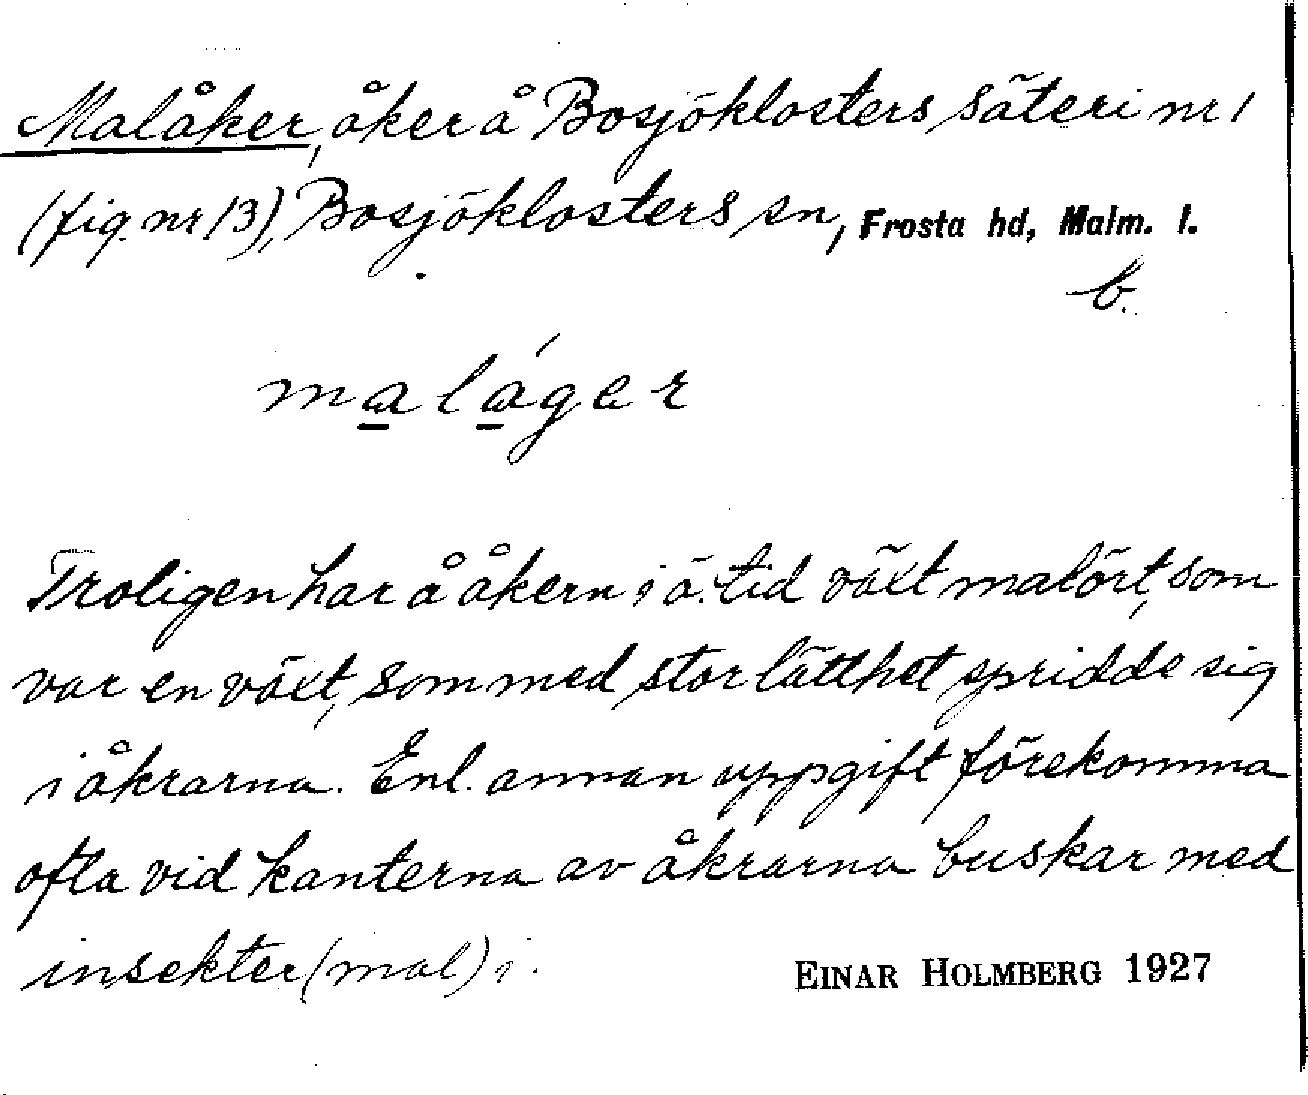 Malåker, åker å Bosjöklosters säteri nr 1
(fig. nr 13), Bosjöklosters sn, Frosta hd, Malm. l.
b.
maláger
Troligen har å åkern i ä. tid växt malört, som
var en växt, som med stor lätthet spridde sig
i åkrarna. Enl. annan uppgift förekomma
ofta vid kanterna av åkrarna buskar med
insekter (mal) i.
EINAR HOLMBERG 1927